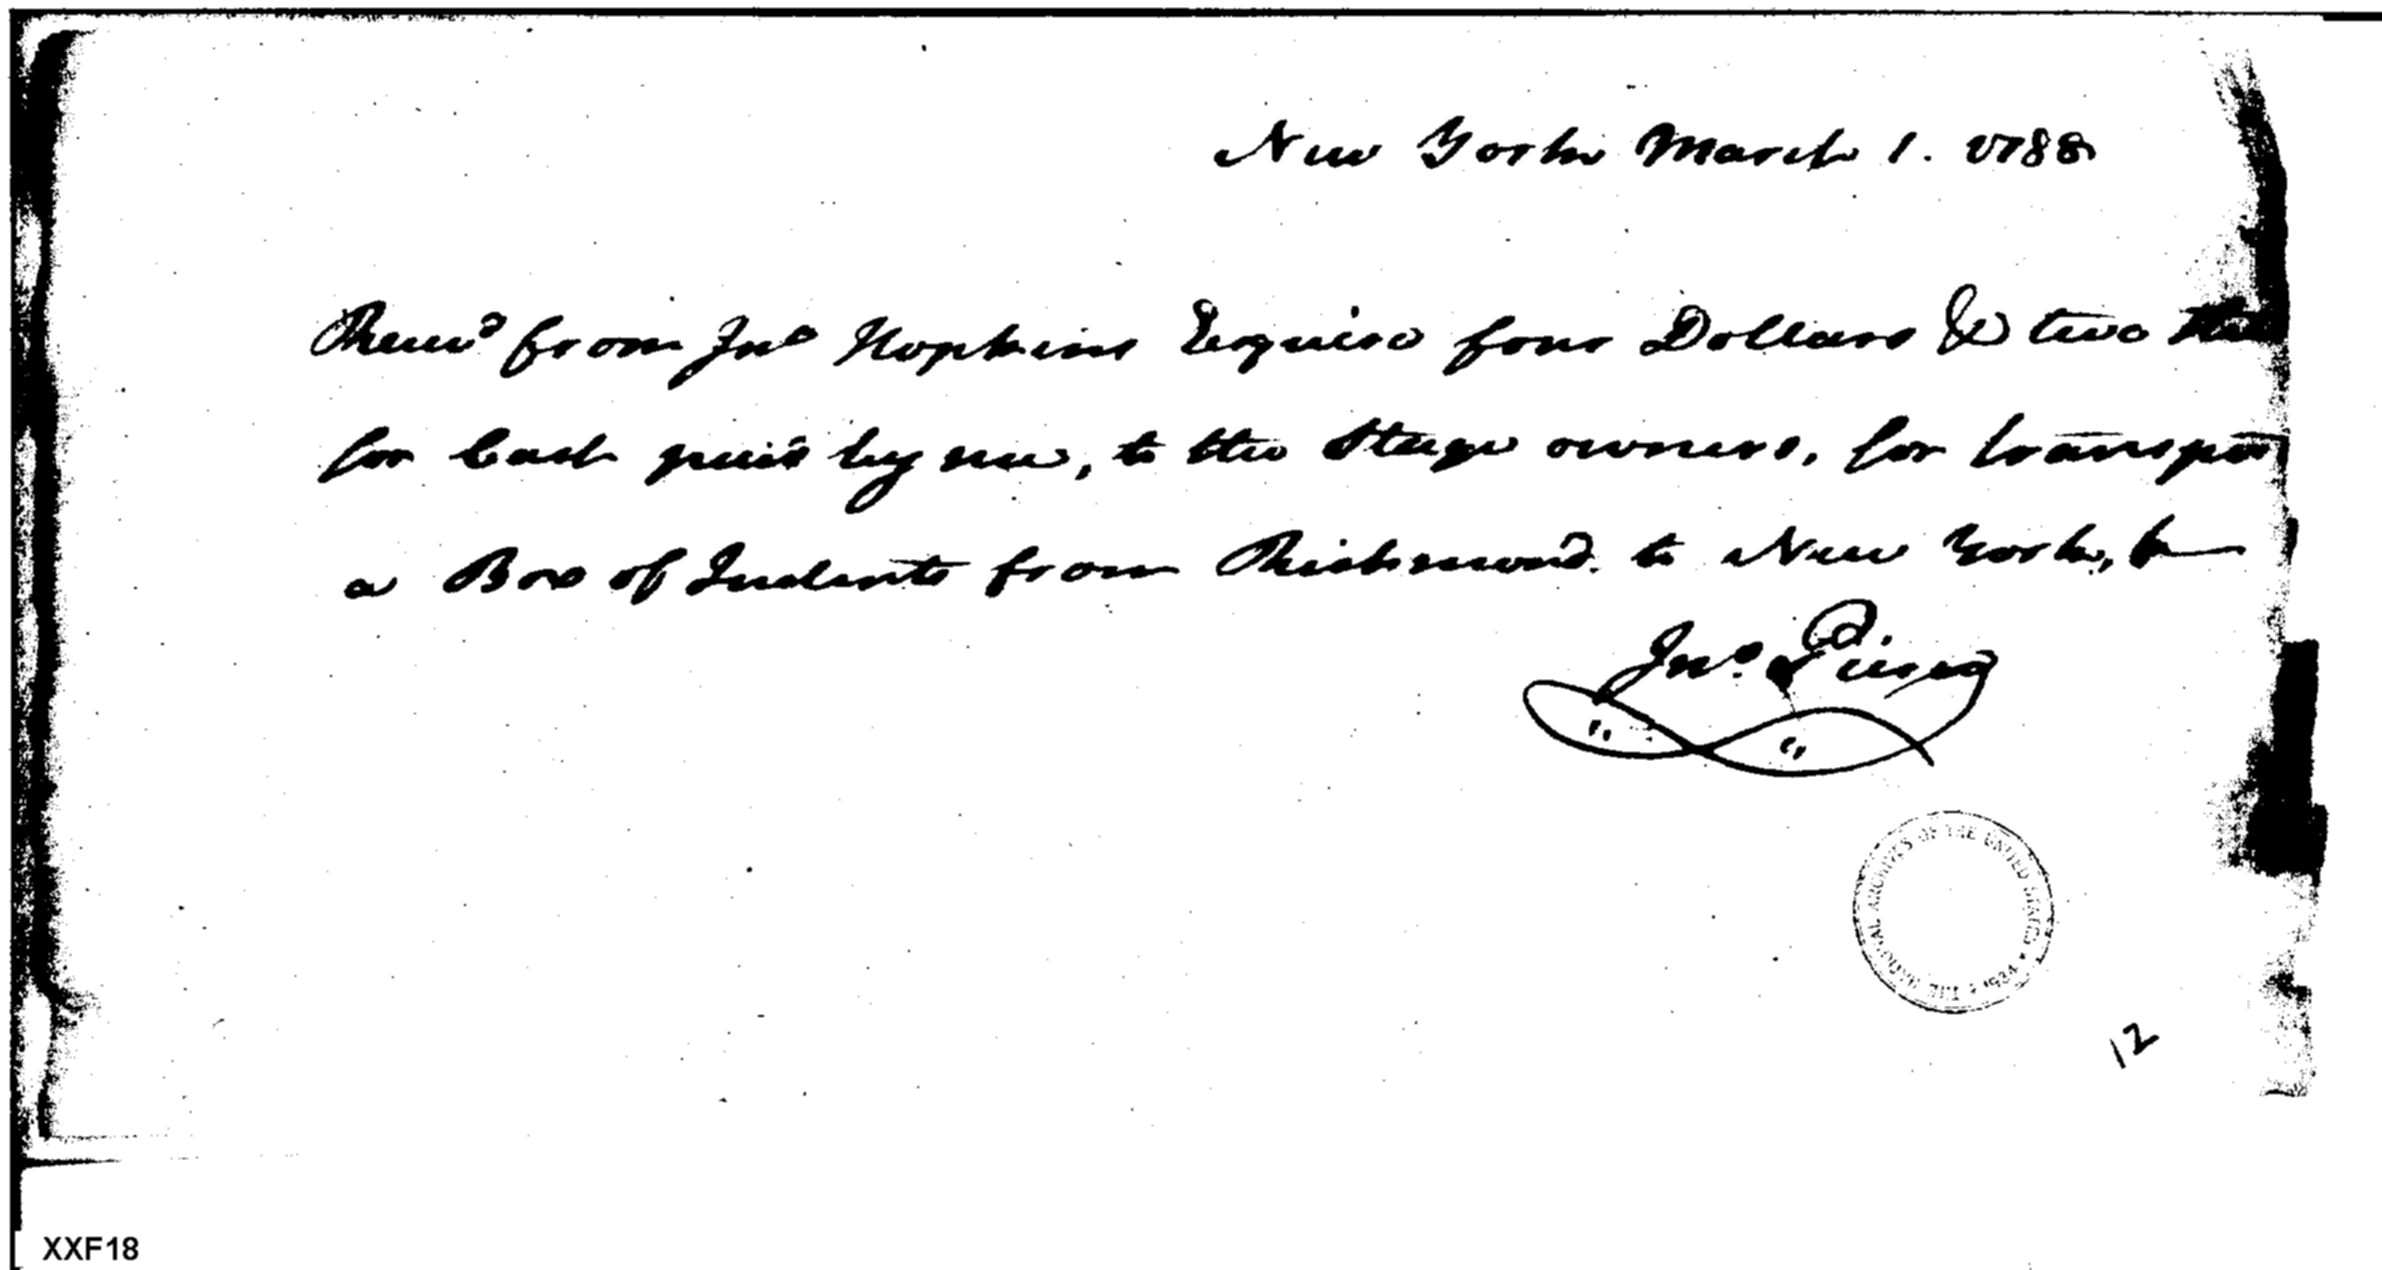 New York March 1. 1788
Recev^d from Jn^o Hopkins Esquire four Dollars & two
for Cash paid by me, to the Stage owners, for transpor
a Box of Indents from Richmond to New York,
Jn^o. Pierce
THE NATIONAL ARCHIVES OF THE UNITED STATES * 1934 *
12
XXF18